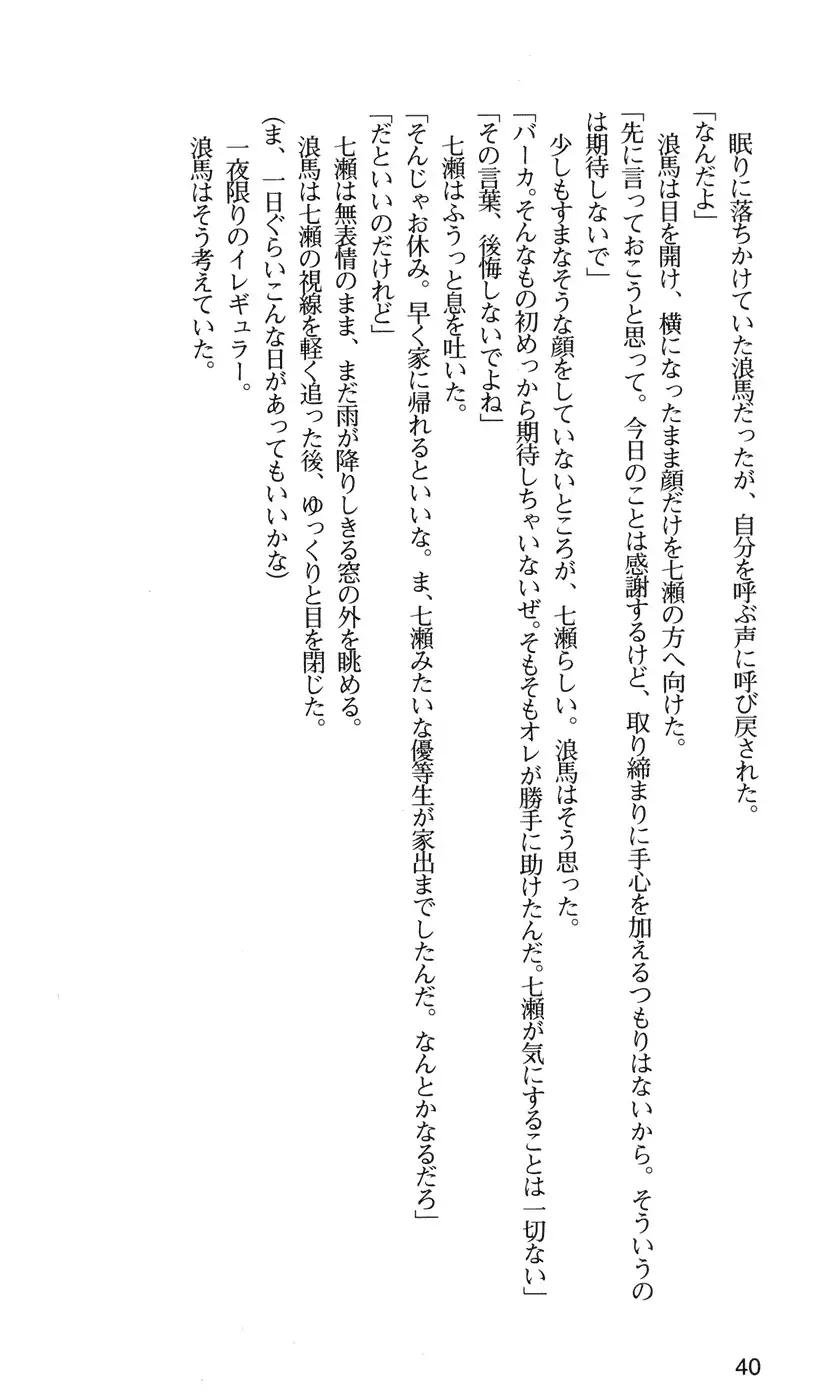 眠りに落ちかけていた浪馬だったが、自分を呼ぶ声に呼び戻された。
「なんだよ」
浪馬は目を開け、横になったまま顔だけを七瀬の方へ向けた。
「先に言っておこうと思って。今日のことは感謝するけど、取り締まりに手心を加えるつもりはないから。そういうの
は期待しないで」
少しもすまなそうな顔をしていないところが、七瀬らしい。浪馬はそう思った。
「バーカ。そんなもの初めっから期待しちゃいないぜ。そもそもオレが勝手に助けたんだ。七瀬が気にすることは一切ない」
「その言葉、後悔しないでよね」
七瀬はふうっと息を吐いた。
「そんじゃお休み。早く家に帰れるといいな。ま、七瀬みたいな優等生が家出までしたんだ。なんとかなるだろ」
「だといいのだけれど」
七瀬は無表情のまま、まだ雨が降りしきる窓の外を眺める。
浪馬は七瀬の視線を軽く追った後、ゆっくりと目を閉じた。
(ま、一日ぐらいこんな日があってもいいかな)
一夜限りのイレギュラー。
浪馬はそう考えていた。
40